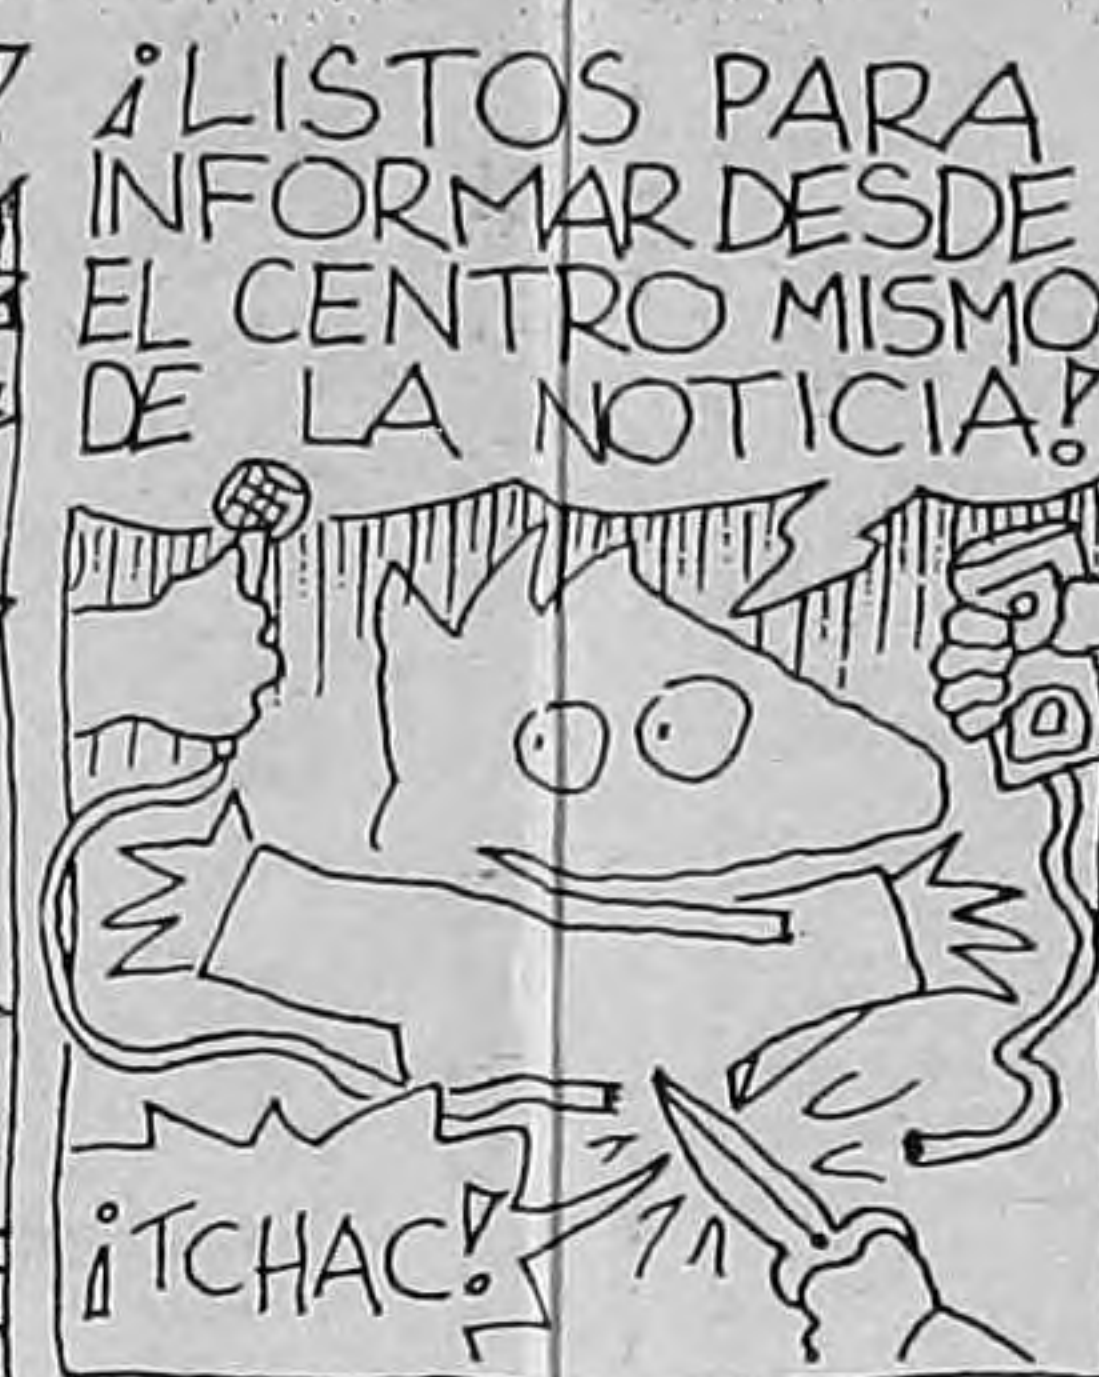 ¡LISTOS PARA
INFORMAR DESDE
EL CENTRO MISMO
DE LA NOTICIA!
¡TCHAC!